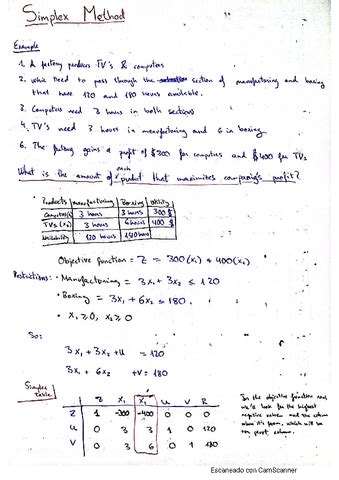 Simplex Method
Example
1. A factory produces TV's & computers
2. which need to pass through the section of manufacturing and boxing
that have 120 and 180 hours available.
3. Computers need 3 hours in both sections
4. TV's need 3 hours in manufacturing and 6 in boxing
6. The factory gains a profit of $300 for computers and $400 for TVs
What is the amount of each product that maximizes company's profit?
Products manufacturing Boxing Utility
Computers(x1) 3 hours 3 hours 300 $
TVs (x2) 3 hours 6 hours 400 $
Availability 120 hours 180 hours
Objective function = Z = 300(x1) + 400(x2)
Restrictions: • Manufactoring = 3x1 + 3x2 ≤ 120
• Boxing = 3x1 + 6x2 ≤ 180.
• x1 ≥ 0, x2 ≥ 0
So:
3x1 + 3x2 + u = 120
3x1 + 6x2 + v = 180
Simplex table
Z X1 X2 U V R
Z 1 -300 -400 0 0 0
U 0 3 3 1 0 120
V 0 3 6 0 1 180
In the objective function and
we'll look for the highest
negative value and the column
where it's from, which will be
our pivot column.
Escaneado con CamScanner